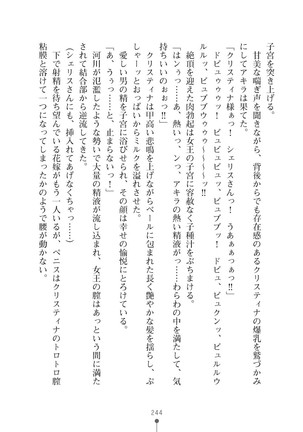 子宮を突き上げる。
　甘美な喘ぎ声を聞きながら、背後からでも存在感のあるクリスティナの爆乳を鷲づかみ
にしてアキラは果てた。
「クリスティナ様ぁっ！　シェリスさんっ！　うあぁぁっぁっ!!」
　ドビュゥゥゥッ！　ビュビュビュッ、ビュブブッ！　ドビュ、ビュクンッ、ビュルルウ
ルルッ、ビュブブウゥゥゥ～～～～ッ!!
　絶頂を迎えた肉勃起は女王の子宮に容赦なく子種汁をまける。
「はンぅっ……あ、熱いっ、ンっ、アキラの熱い精液がっ……わらわの中を満たして、気
持ちいいのぉぉっ!!」
　クリスティナは甲高い悲鳴を上げながらベールに包まれた長く艶やかな髪を揺らし、ぶ
しゃーッとおっぱいからミルクを溢れさせた。
　愛しい男の精を子宮に浴びせられ、その顔は幸せの愉悦にとろけている。
「あ、ううっ……と、止まらないっ！」
　河川が氾濫したような勢いで大量の精液が流し込まれ、あっという間に女王の膣内が満た
されて結合部から逆流してきた。
（シェリスさんにも、挿入れてあげなくちゃっ……）
　下で射精を待ち望んでいる花嫁がもう一人いるが、ペニスはクリスティナのトロトロ膣
粘膜と溶けて一つになってしまったかのようで腰が動かない。
244